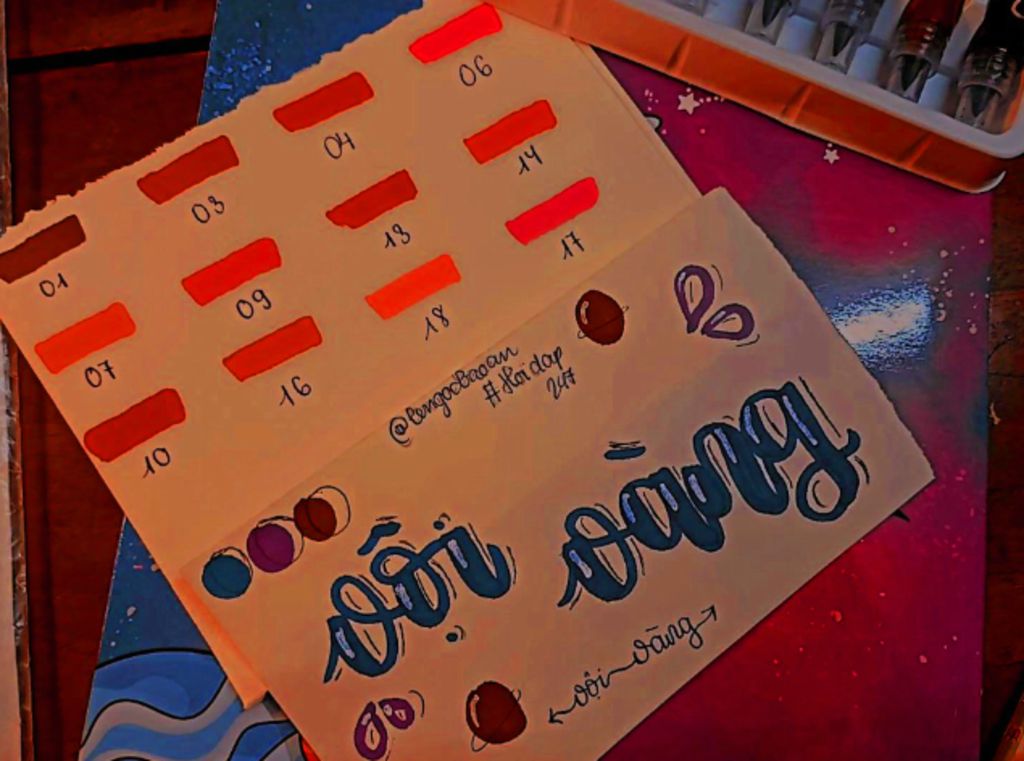 06
04
03
01
14
13
09
07
17
18
16
10
@lengocbaoan
#Hoidap
247
vội vàng
vội vàng